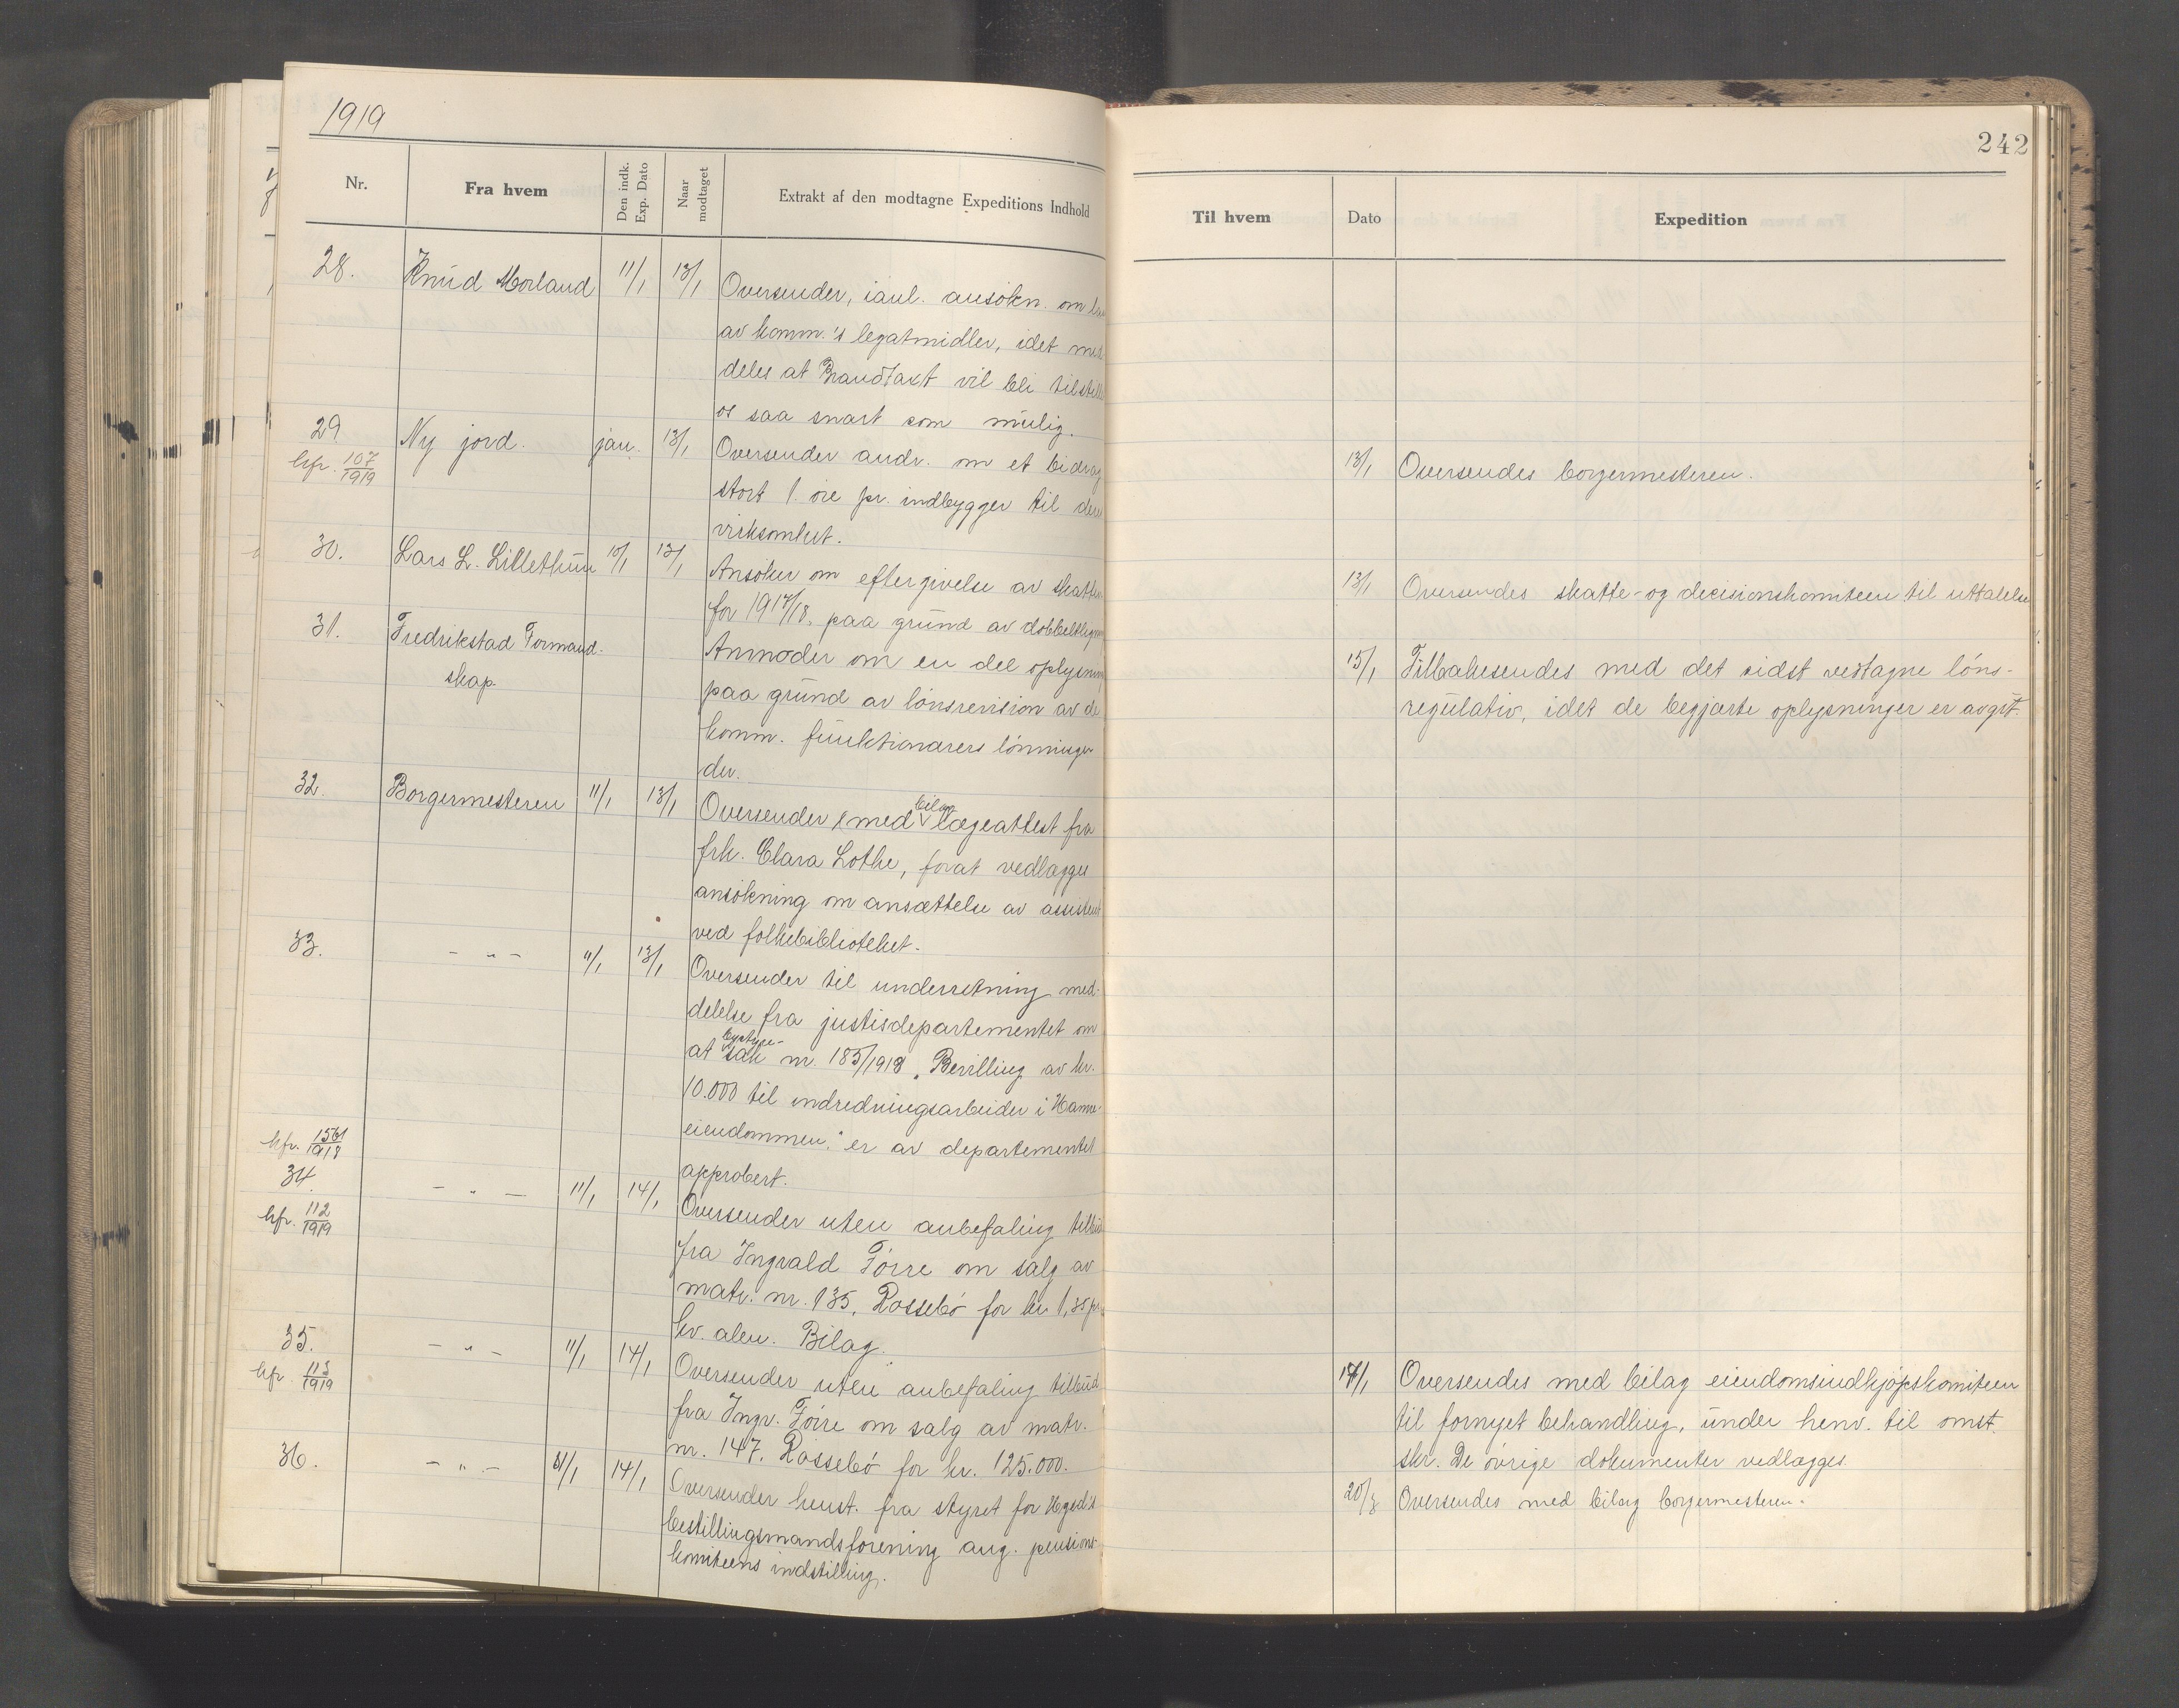 1919
Nr.
Fra hvem
Den indk. Exp. Dato
Naar modtaget
Extrakt af den modtagne Expeditions Indhold
28.
Knud Morland
11/1
13/1
Oversender, ianl. ansökn. om
av komm.'s legatmidler, idet med-
deles at Brandtakt vil bli tilstillet
os saa snart som mulig.
29
kfr. 107/1919
Ny jord.
jan.
13/1
Oversender andr. om et bidrag
stort 1 öre pr. indbygger til deres
virksomhet.
30.
Lars L. Lillethun
10/1
13/1
Ansöker om eftergivelse av skatten
for 1917/18, paa grund av dobbeltlign
31.
Fredrikstad Formand-
skap.
Anmoder om en del oplysning
paa grund av lönsrevision av de
komm. funktionærers lönninger
der.
32.
Borgermesteren
11/1
13/1
bilag
Oversender med lægeattest fra
frk. Clara Lothe, forat vedlægges
ansökning om ansættelse av assistent
ved folkebiblioteket.
33.
- " -
11/1
13/1
Oversender til underretning med-
delelse fra justisdepartementet om
bystyre-
at sak nr. 185/1918 „Bevilling av kr.
10.000 til indredningsarbeider i Hamre-
eiendommen." er av departementet
approbert.
kfr. 1561/1918
34.
kfr. 112/1919
- " -
11/1
14/1
Oversender uten anbefaling tilbud
fra Ingvald Förre om salg av
matr. nr. 135, Rossebö for kr. 1,35 pr.
kv. alen. Bilag.
35.
kfr. 113/1919
- " -
11/1
14/1
Oversender uten anbefaling tilbud
fra Ingv. Förre om salg av matr.
nr. 147, Rossebö for kr. 125.000.
36.
- " -
11/1
14/1
Oversender henst. fra styret for Hgsd's
bestillingsmandsforening ang. pensions-
komiteens indstilling.
242
Til hvem
Dato
Expedition
13/1
Oversendes borgermesteren.
13/1
Oversendes skatte- og decisionskomiteen til uttalelse
15/1
Tilbakesendes med det sidst vedtagne löns-
regulativ, idet de begjærte oplysninger er avgit.
17/1
Oversendes med bilag eiendomsindkjøpskomiteen
til fornyet behandling, under henv. til omst.
skr. De övrige dokumenter vedlægges.
20/3
Oversendes med bilag borgermesteren.